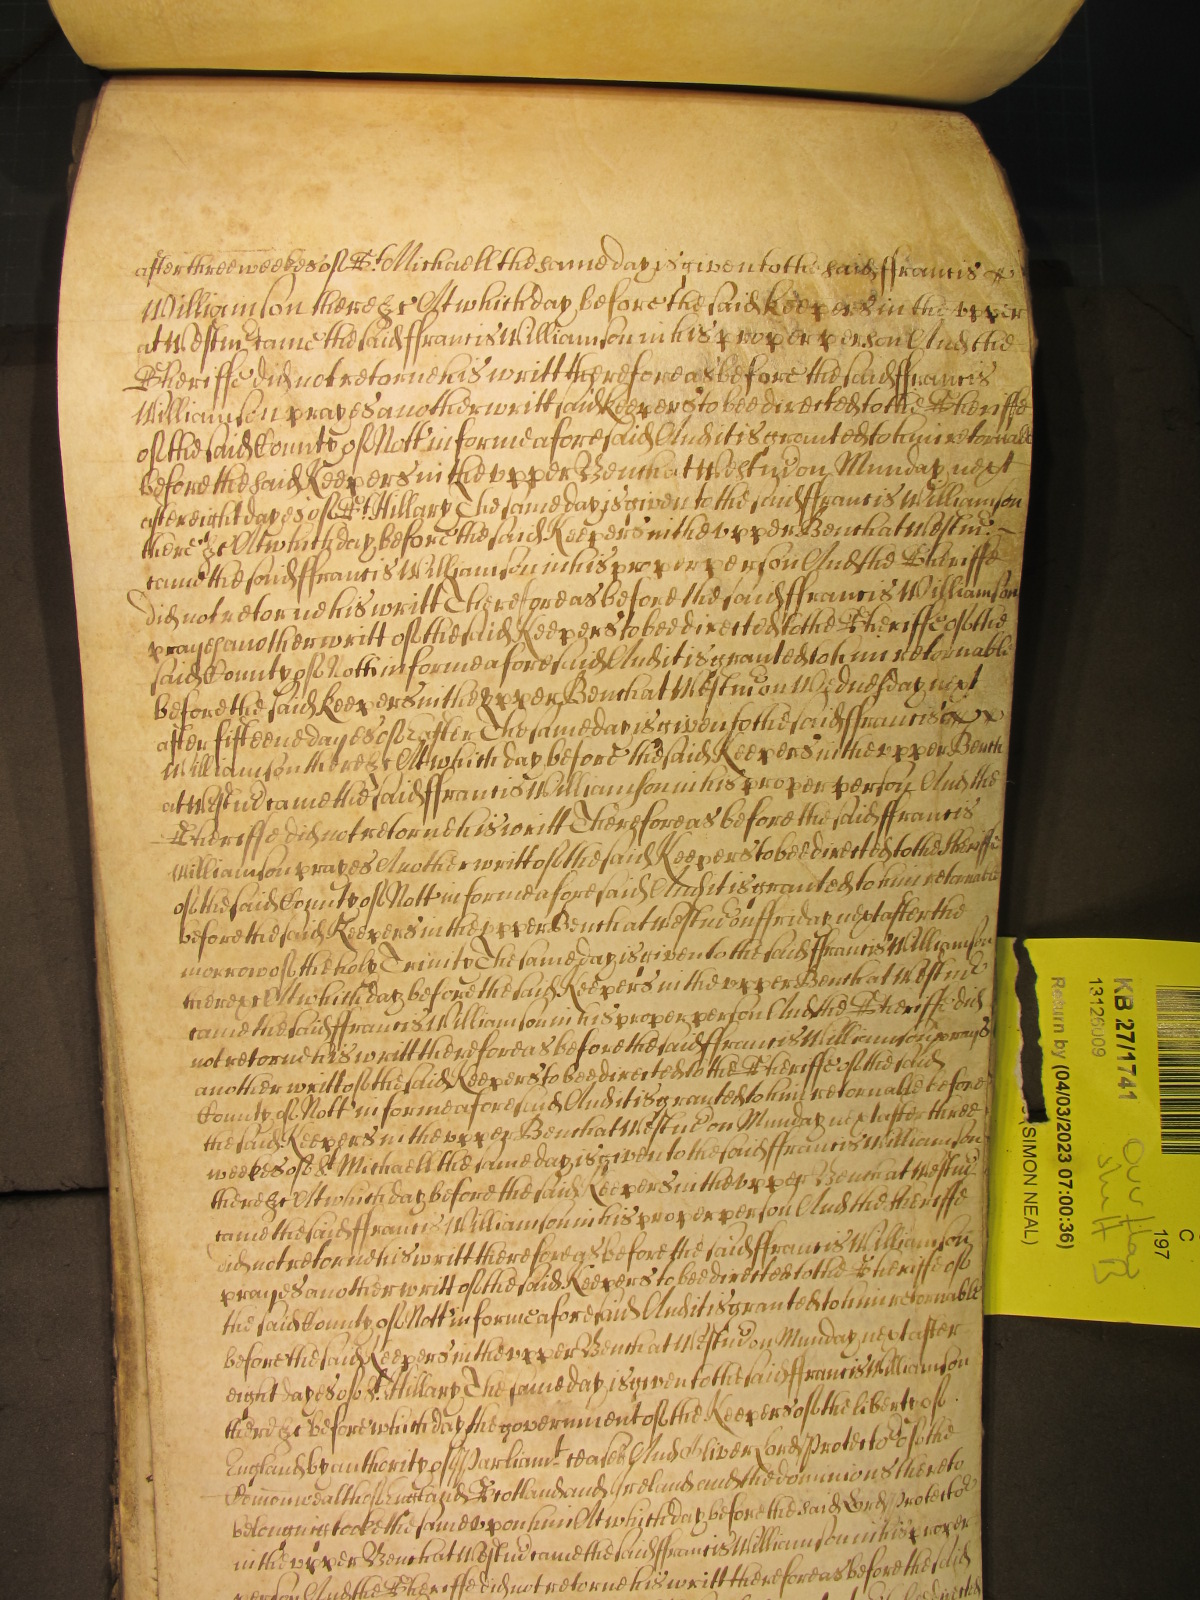 after three weekes of St Michaell the same day is given to the said ffrancis
Williamson there &c At which day before the said Keepers in the vpper
at Westm came the said ffrancis Williamson in his proper person And the
Sheriffe did not retorne his writt therefore as before the said ffrancis
Williamson prayes another writt said Keepers to bee directed to the Sheriffe
of the said County of Nott in forme aforesaid And it is granted to him retornable
before the said Keepers in the vpper Bench at Westm on Munday next
after eight dayes of St Hillary The same day is given to the said ffrancis Williamson
there &c At which day before the said Keepers in the vpper Bench at Westm
came the said ffrancis Williamson in his proper person And the Sheriffe
did not retorne his writt Therefore as before the said ffrancis Williamson
prayes another writt of the said Keepers to bee directed to the Sheriffe of the
said County of Nott in forme aforesaid And it is granted to him retornable
before the said Keepers in the vpper Bench at Westm on Wednesday next
after fifteene dayes of Easter The same day is given to the said ffrancis
Williamson there &c At which day before the said Keepers in the vpper Bench
at Westm came the said ffrancis Williamson in his proper person And the
Sheriffe did not retorne his writt Therefore as before the said ffrancis
Williamson prayes Another writt of the said Keepers to bee directed to the Sheriffe
of the said County of Nott in forme aforesaid And it is granted to him retornable
before the said Keepers in the vpper Bench at Westm on ffriday next after the
morrow of the holy Trinity The same day is given to the said ffrancis Williamson
there &c At which day before the said Keepers in the vpper Bench at Westm
came the said ffrancis Williamson in his proper person And the Sheriffe did
not retorne his writt therefore as before the said ffrancis Williamson prayes
another writt of the said Keepers to bee directed to the Sheriffe of the said
County of Nott in forme aforesaid And it is granted to him retornable before
the said Keepers in the vpper Bench at Westm on Munday next after three
weekes of St Michaell the same day is given to the said ffrancis Williamson
there &c At which day before the said Keepers in the vpper Bench at Westm
came the said ffrancis Williamson in his proper person And the sheriffe
did not retorne his writt therefore as before the said ffrancis Williamson
prayes another writt of the said Keepers to bee directed to the Sheriffe of
the said County of Nott in forme aforesaid And it is granted to him retornable
before the said Keepers in the vpper Bench at Westm on Munday next after
eight dayes of St Hillary The same day is given to the said ffrancis Williamson
there &c before which day the government of the Keepers of the liberty of
England by authority of Parliamt ceased And Oliver Lord Protector of the
Comonwealth of England Scotland and Ireland and the dominions thereto
belonging tooke the same vpon him At which day before the said Lord Protector
in the vpper Bench at Westm came the said ffrancis Williamson in his proper
person And the Sheriffe did not retorne his writt therefore as before the said
KB 27/1741
13126009
Return by (04/03/2023 07:00:36)
(SIMON NEAL)
C
197